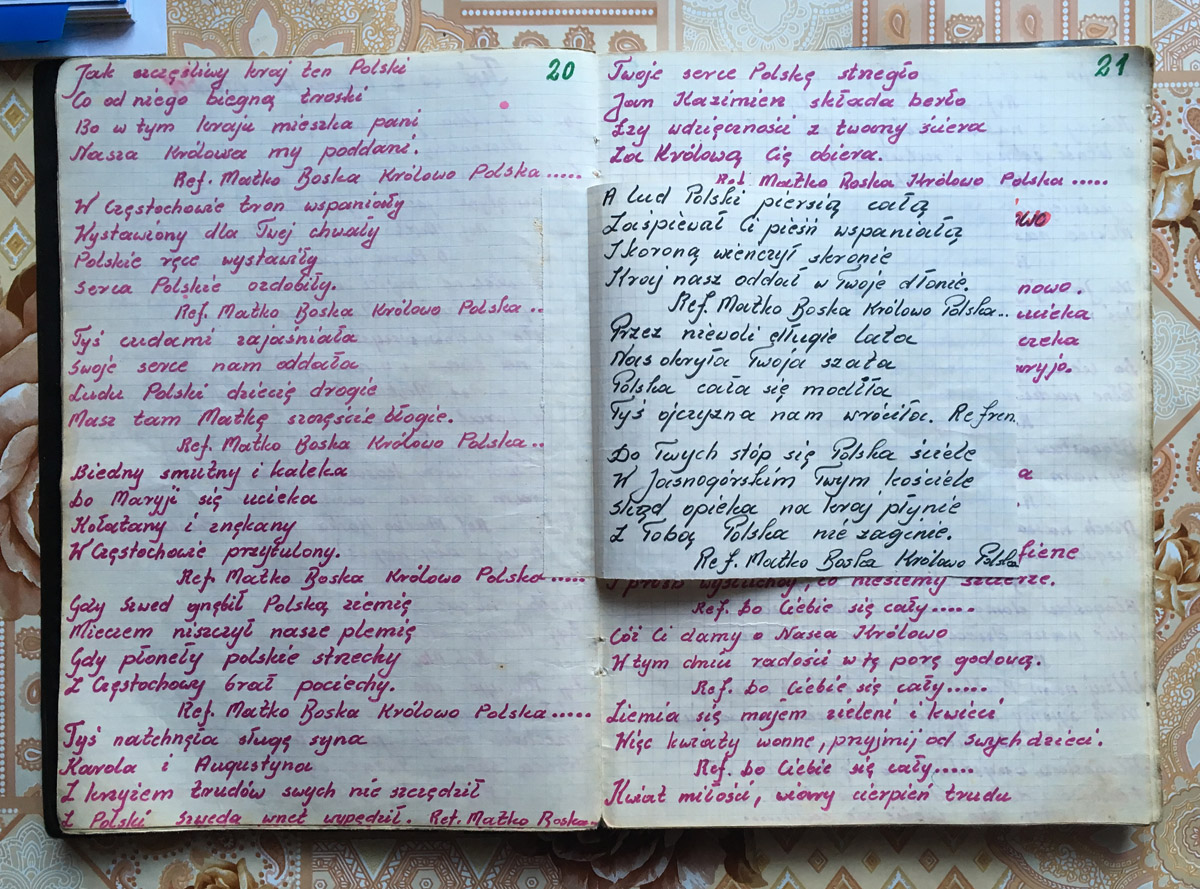 20
Jak szczęśliwy kraj ten Polski
Co od niego biegną troski
Bo w tym kraju mieszka pani
Nasza Królowa my poddani.
Ref. Matko Boska Królowo Polska.....
W Częstochowie tron wspaniały
Wystawiony dla Twej chwały
Polskie ręce wystawiły
serca Polskie ozdobiły.
Ref. Matko Boska Królowo Polska..
Tyś cudami zajaśniała
Swoje serce nam oddała
Ludu Polski dziecię drogie
Masz tam Matkę szczęście błogie.
Ref. Matko Boska Królowo Polska..
Biedny smutny i kaleka
Do Maryji się ucieka
Kołatany i znękany
W Częstochowie przytulony.
Ref Matko Boska Królowo Polska.....
Gdy szwed gnębił Polską ziemię
Mieczem niszczył nasze plemię
Gdy płoneły polskie strzechy
Z Częstochowy brał pociechy.
Ref. Matko Boska Królowo Polska.....
Tyś natchnęła sługę syna
Karola i Augustyna
Z krzyżem trudów swych nie szczędził
Z Polski szweda wnet wypędził. Ref. Matko Boska..
21
Twoje serce Polskę strzegło
Jan Kazimierz składa berło
Łzy wdzięczności z twarzy ściera
Za Królową Cię obiera.
Ref. Matko Boska Królowo Polska.....
A lud Polski piersią całą
Zaśpiewał Ci pieśń wspaniałą
I koroną wieńczył skronie
Kraj nasz oddał w Twoje dłonie.
Ref. Matko Boska Królowo Polska..
Przez niewoli długie lata
Nas okryła Twoja szata
Polska cała się modliła
Tyś ojczyzna nam wróciła. Refren.
Do Twych stóp się Polska ściele
W Jasnogórskim Twym kościele
skąd opieka na kraj płynie
Z Tobą Polska nie zaginie.
Ref. Matko Boska Królowo Polska
wo
nowo.
ucieka
czeka
aryjo.
a
fiene
I prośb wysłuchaj, co niesiemy szczerze.
Ref. Do Ciebie się cały.....
Cóż Ci damy o Nasza Królowo
W tym dniu radości w tę porę godową.
Ref. Do Ciebie się cały.....
Ziemia się majem zieleni i kwieci
Więc kwiaty wonne, przyjmij od swych dzieci.
Ref. Do Ciebie się cały.....
Kwiat miłości, wiary cierpień trudu